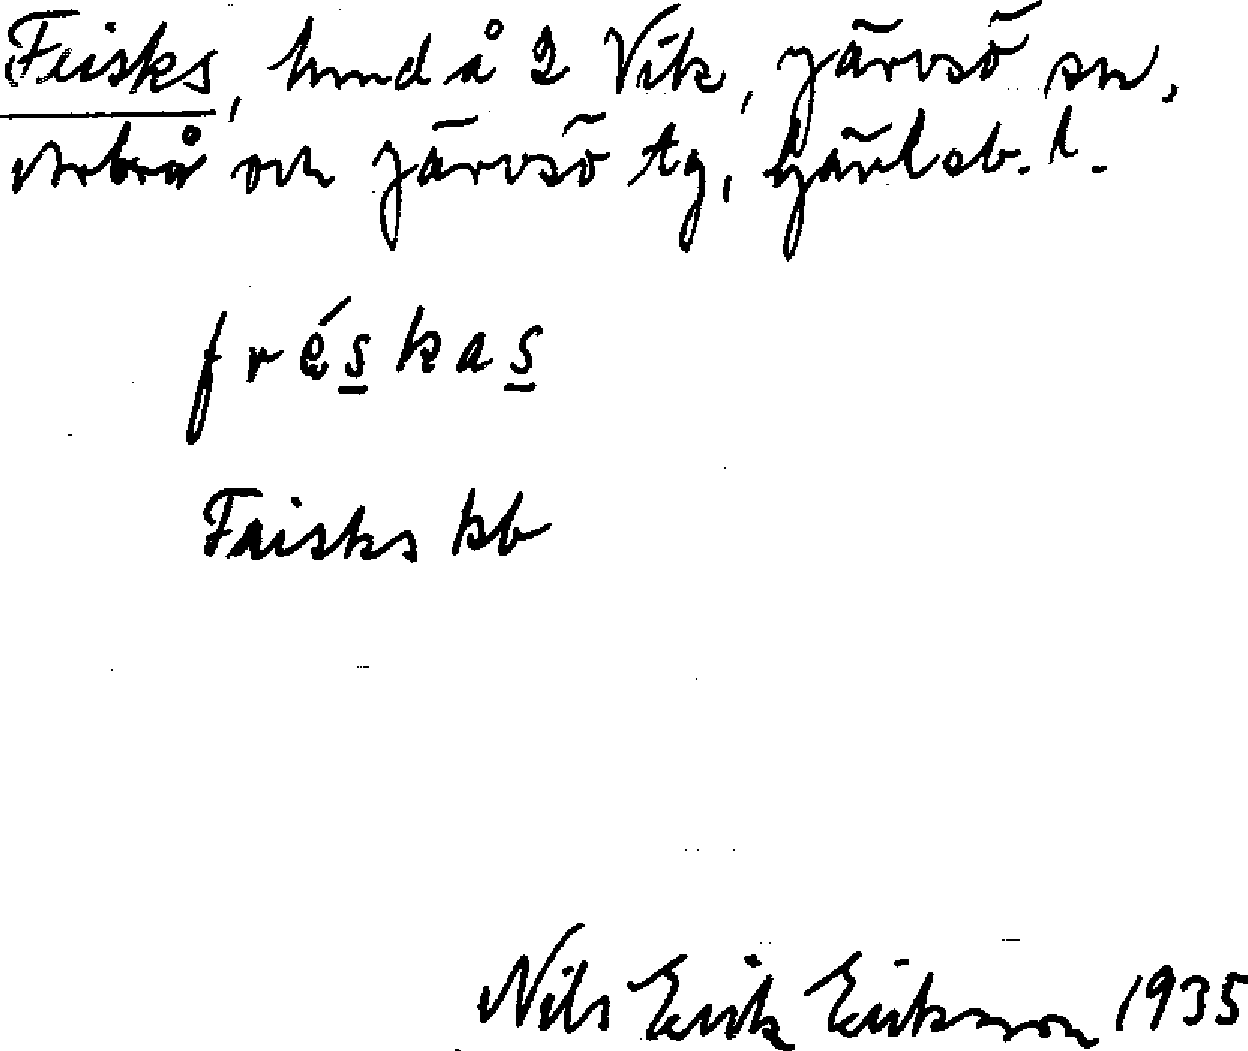 Feisks, hmnd å 2 Vik, Järvsö sn,
Arbrå och Järvsö tg, Gävleb. l.
fréskas
Faisks kb
Nils Erik Eriksson 1935